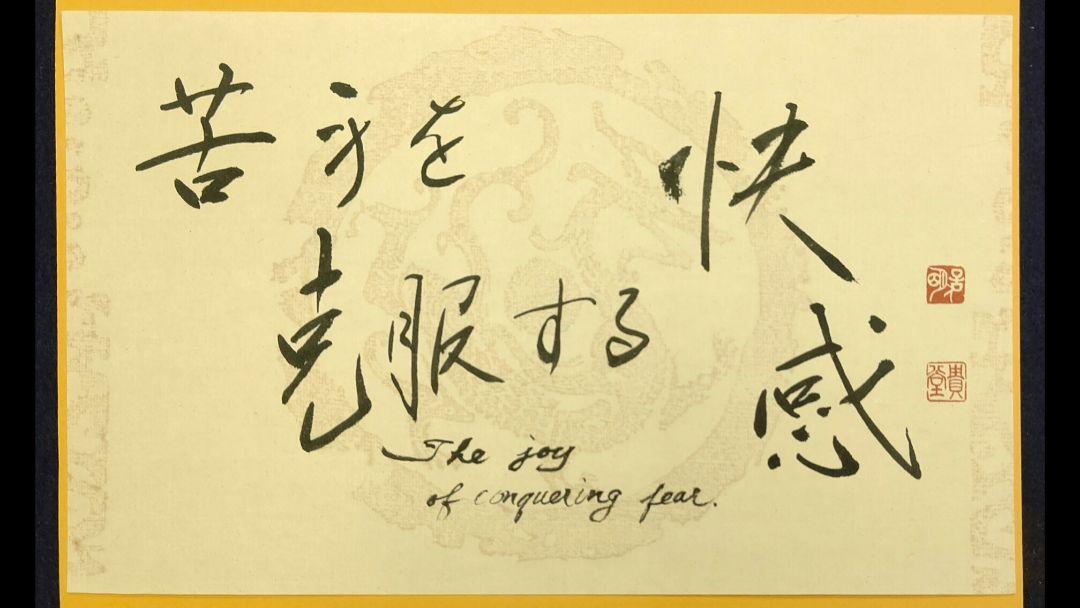 苦手を
克服する
快感
The joy
of conquering fear.